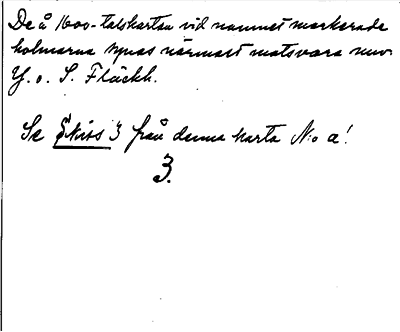 De å 1600-talskartan vid namnet markerade
holmarna synas närmast motsvara nuv.
Y. o. S. Fläckh.
Se Skiss 3 från denna karta N:o a!
3.